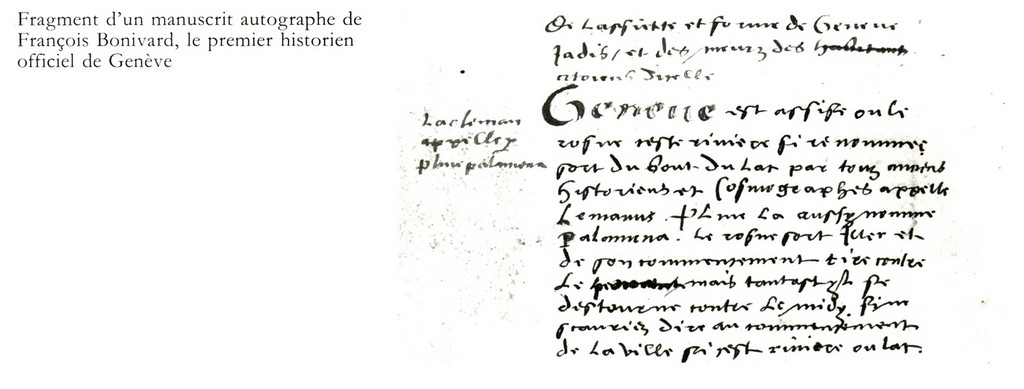 Fragment d'un manuscrit autographe de
François Bonivard, le premier historien
officiel de Genève
De Lassiette et forme de Geneve
Jadis / et des meurz des habitans
citoiens dicelle
Lac leman
appelle
pline palamena
Geneve est assise ou le
rosne ceste riviere si renommee
sort du bout du Lac par tous anciens
historiens et Cosmographes appelle
Lemanus. Pline La aussy nomme
Palamena. Le rosne sort et
de son commencement tire contre
Le mais tantost se
destourne contre Le midy.
scauriez dire au commencement
de La ville si cest riviere ou lac.